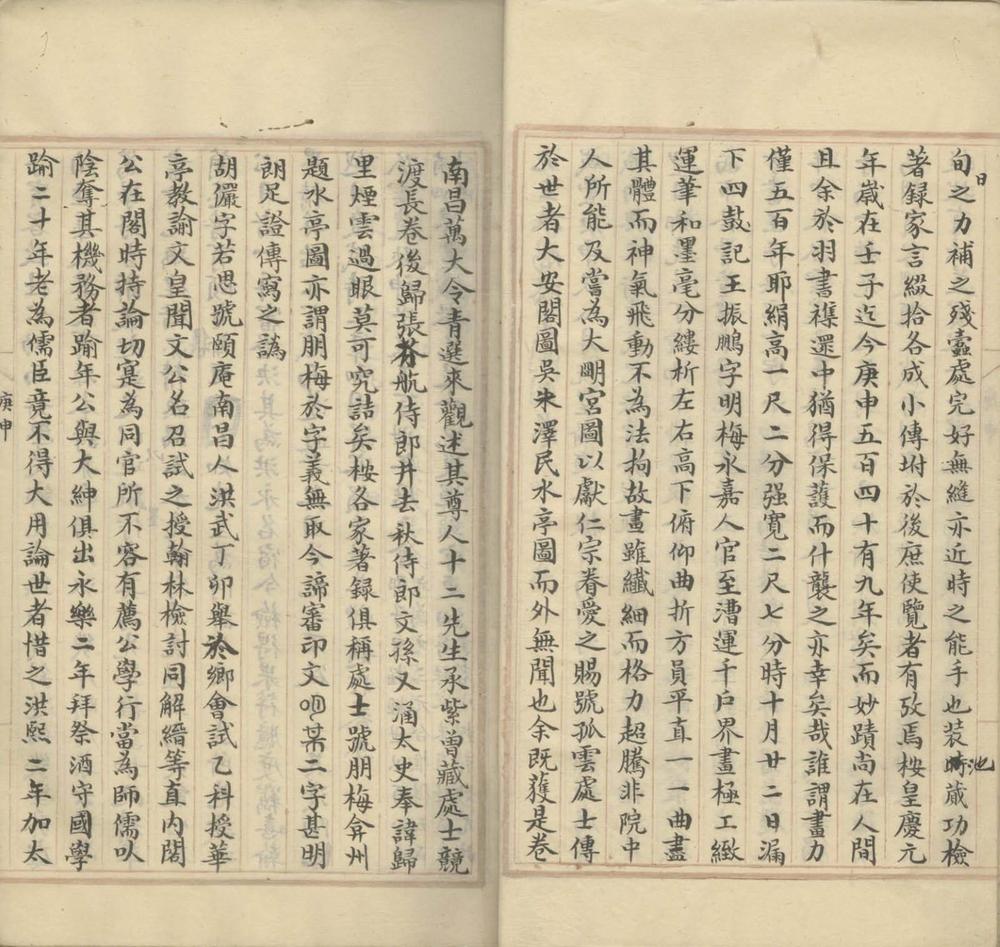 旬日之力補之殘蠧處完好無縫亦近時之能手也装池蕆功檢
著録家言綴拾各成小傳坿於後庶使覽者有攷焉桉皇慶元
年嵗在壬子迄今庚申五百四十有九年矣而妙蹟尚在人間
且余於羽書襍遝中猶得保護而什襲之亦幸矣哉誰謂畫力
僅五百年耶絹高一尺二分强寛二尺七分時十月廿二日漏
下四鼓記王振鵬字明梅永嘉人官至漕運千戶界畫極工緻
運筆和墨毫分縷析左右高下俯仰曲折方員平直一一曲盡
其體而神氣飛動不為法拘故畫雖纖細而格力超騰非院中
人所能及嘗為大明宮圖以獻仁宗眷愛之賜號孤雲處士傳
於世者大安閣圖吳朱澤民水亭圖而外無聞也余既獲是卷
南昌萬大令青選來觀述其尊人十二先生承紫曾藏處士競
渡長卷後歸張芥航侍郎并去秋侍郎文孫又涵太史奉諱歸
里煙雲過眼莫可究詰矣桉各家著録俱稱處士號朋梅弇州
題水亭圖亦謂朋梅於字義無取今諦審印文某二字甚明
朗足證傳寫之譌
胡儼字若思號頤庵南昌人洪武丁卯舉於鄉會試乙科授華
亭教諭文皇聞文公名召試之授翰林檢討同解縉等直内閣
公在閣時持論切寔為同官所不容有薦公學行當為師儒以
陰奪其機務者踰年公與大紳俱出永樂二年拜祭酒守國學
踰二十年老為儒臣竟不得大用論世者惜之洪熙二年加太
庚申